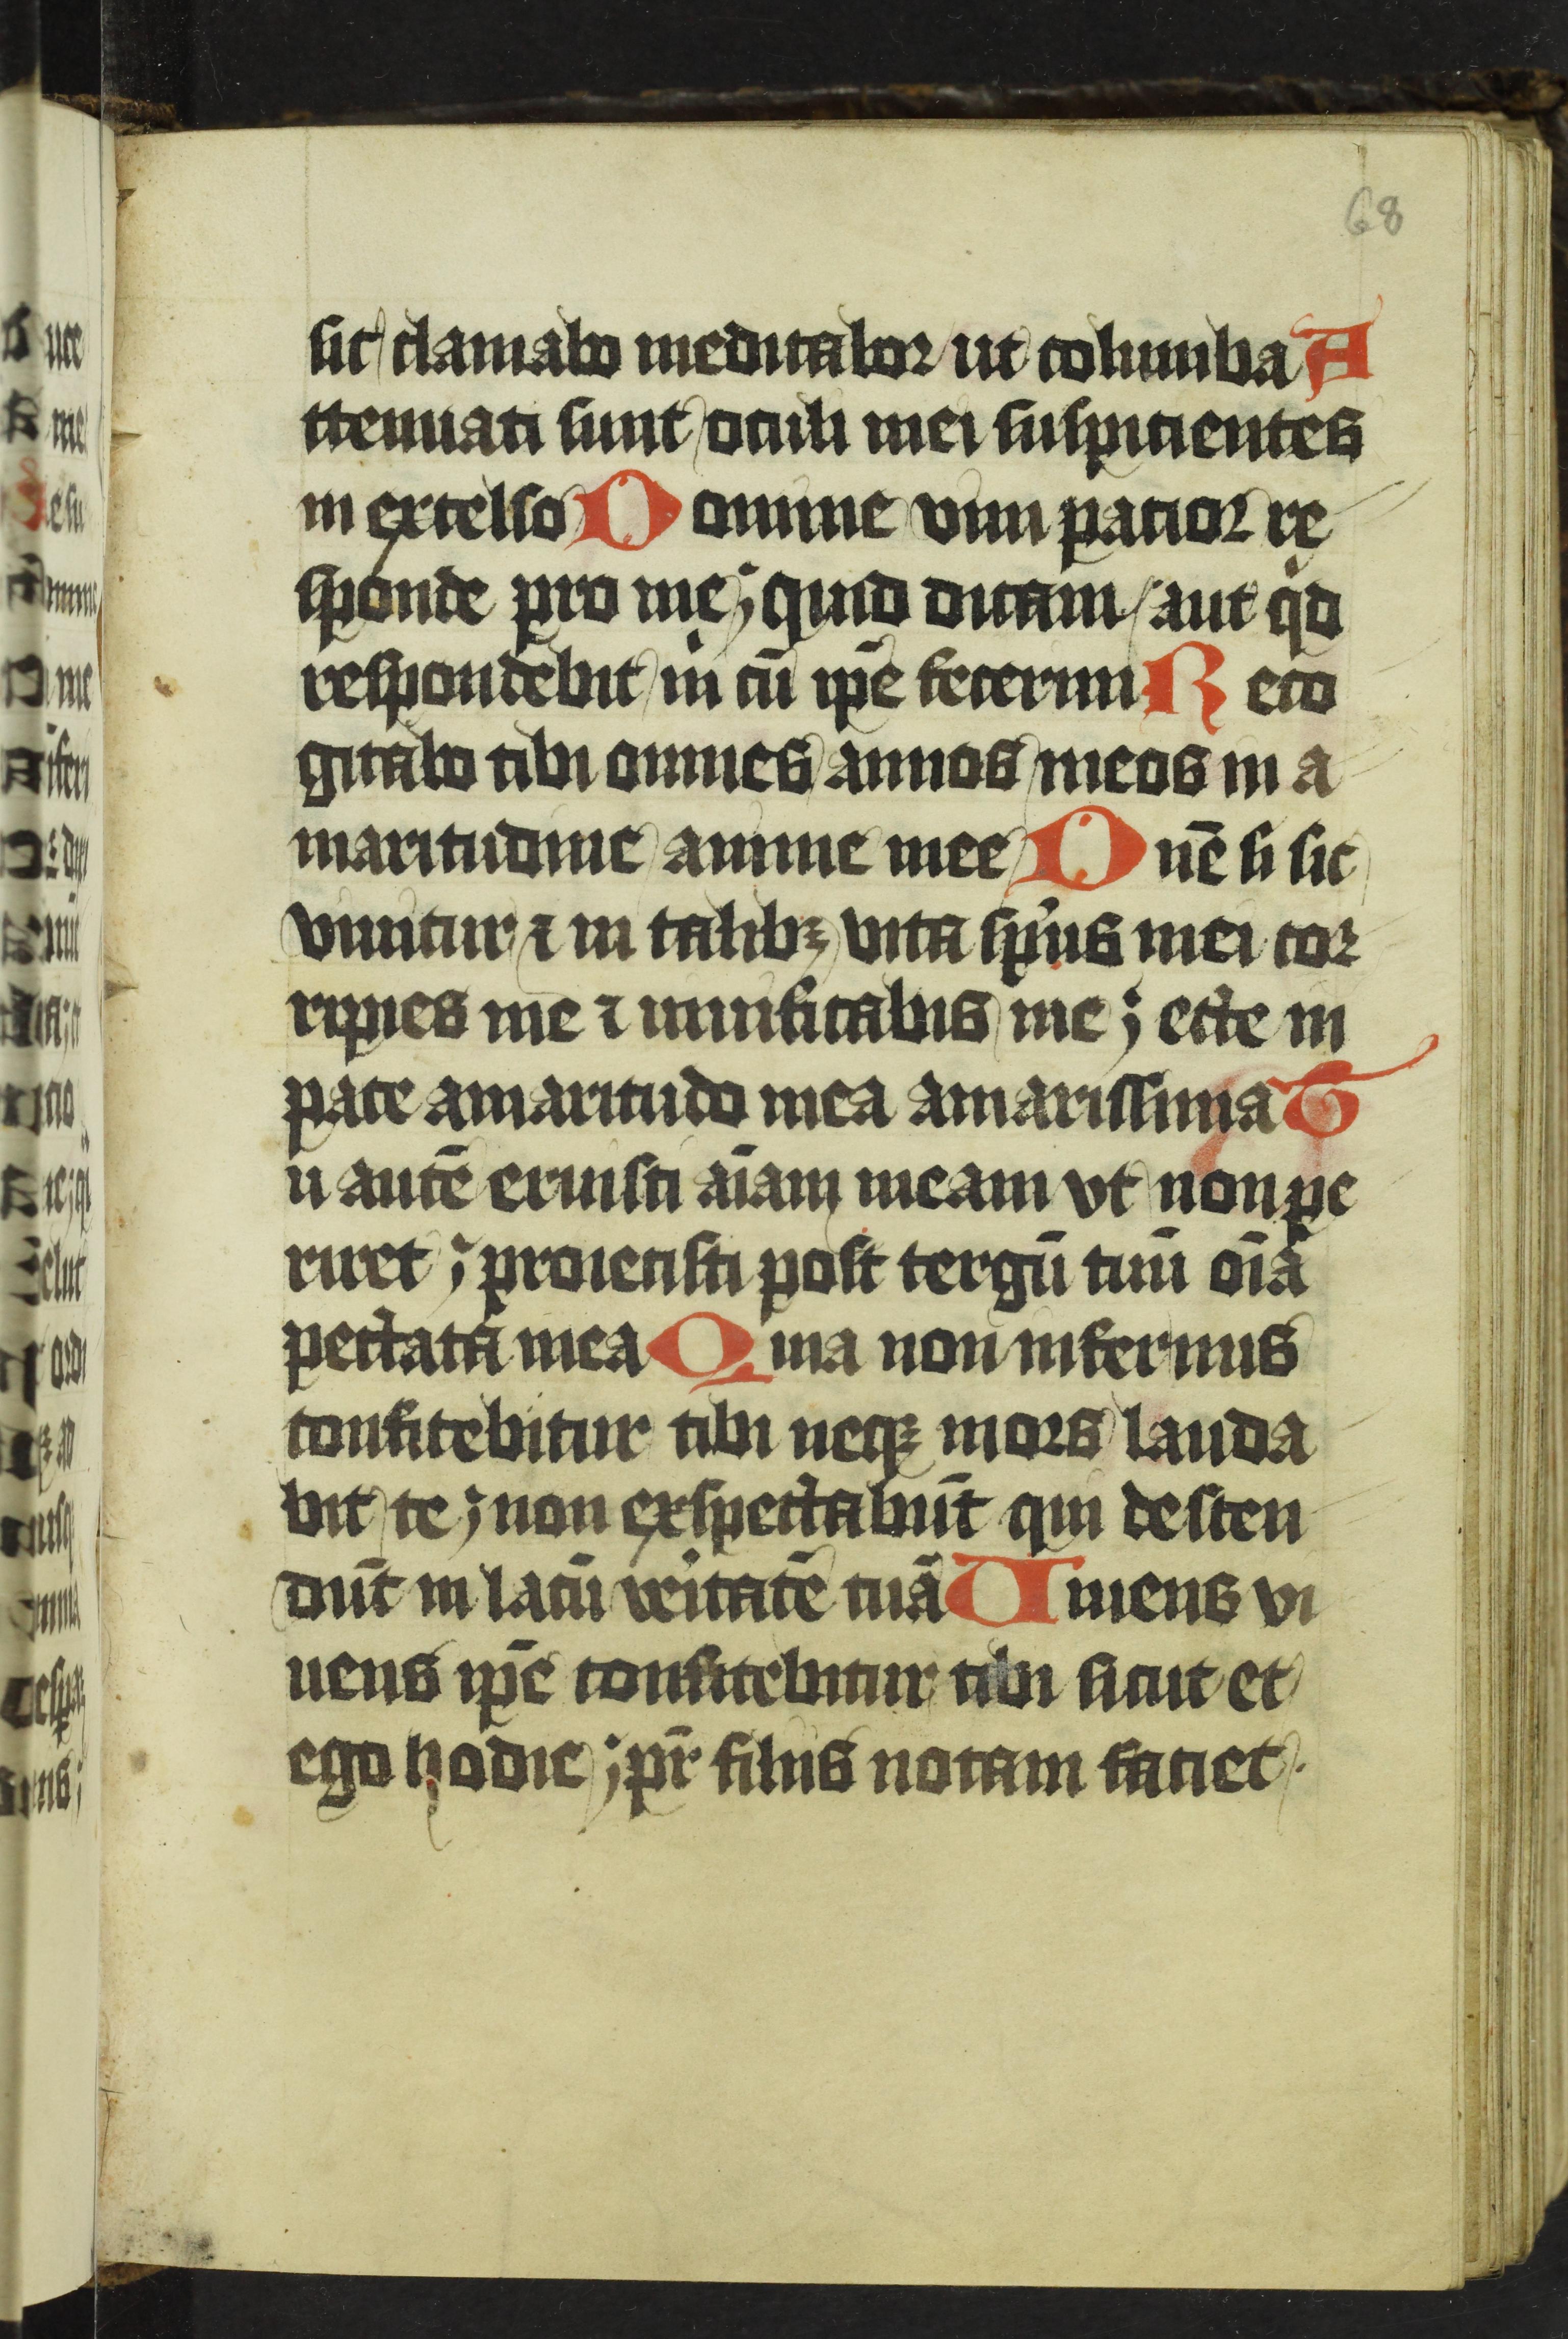 68
sic clamabo meditabor ut columba A
ttenuati sunt oculi mei suspicientes
in excelso D omine vim patior re
sponde pro me ; quid dicam / aut qid
respondebit m̄ cū ip̄e fecerim R eco
gitabo tibi omnes annos meos in a
maritudine anime mee D ne̅ si sic
vivitur ⁊ in talibꝫ vita sp̄us mei cor
ripies me ⁊ vivificabis me ; ecce in
pace amaritudo mea amarissima T
u autē eruisti aīam meam vt non pe
riret ; proiecisti post tergū tuū oīa
peccata mea Q uia non infernus
confitebitur tibi neqꝫ mors lauda
bit te ; non exspectabūt qui descen
dūt in lacū veritatē tuā U iuens vi
uens ip̄e confitebitur tibi sicut et
ego hodie ; pr̄ filiis notam faciet .